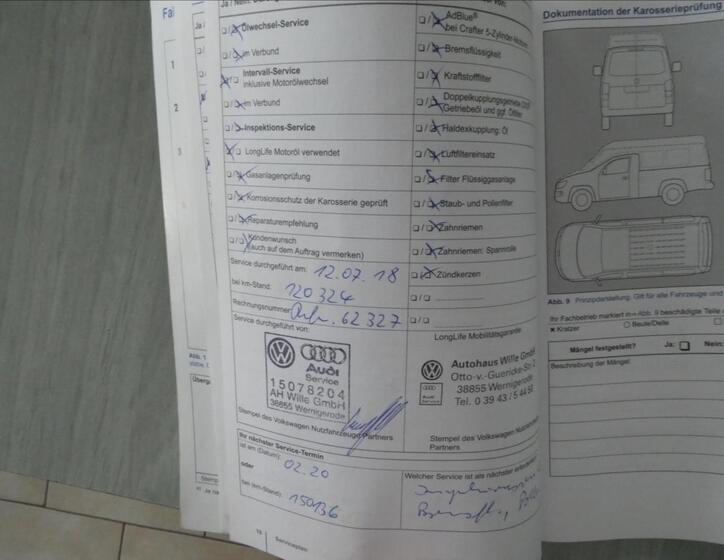 Ja / Nein:
Ölwechsel-Service
im Verbund
Intervall-Service
inklusive Motorölwechsel
im Verbund
Inspektions-Service
LongLife Motoröl verwendet
Gasanlagenprüfung
Korrosionsschutz der Karosserie geprüft
Reparaturempfehlung
Kundenwunsch
(auch auf dem Auftrag vermerken)
Service durchgeführt am: 12.07.18
bei km-Stand: 120324
Rechnungsnummer: 62327
Service durchgeführt von:
Audi
Service
15078204
AH Wille GmbH
38855 Wernigerode
Stempel des Volkswagen Nutzfahrzeuge Partners
Ihr nächster Service-Termin
ist am (Datum): 02.20
oder
bei (km-Stand): 150136
Serviceplan
AdBlue®
bei Crafter 5-Zylinder-Motoren
Bremsflüssigkeit
Kraftstofffilter
Doppelkupplungsgetriebe
Getriebeöl und ggf. Ölfilter
Haldexkupplung: Öl
Luftfiltereinsatz
Filter Flüssiggasanlage
Staub- und Pollenfilter
Zahnriemen
Zahnriemen: Spannrolle
Zündkerzen
LongLife Mobilitätsgarantie
Autohaus Wille GmbH
Otto-v.-Guericke-Str.
38855 Wernigerode
Tel. 0 39 43 / 5 44
Stempel des Volkswagen
Partners
Welcher Service ist als nächster
Dokumentation der Karosserieprüfung
Abb. 9 Prinzipdarstellung: Gilt für alle Fahrzeuge und
Ihr Fachbetrieb markiert in Abb. 9 beschädigte Teile
Kratzer Beule/Delle
Mängel festgestellt? Ja: Nein:
Beschreibung der Mängel:
1
2
3
Abb. 1